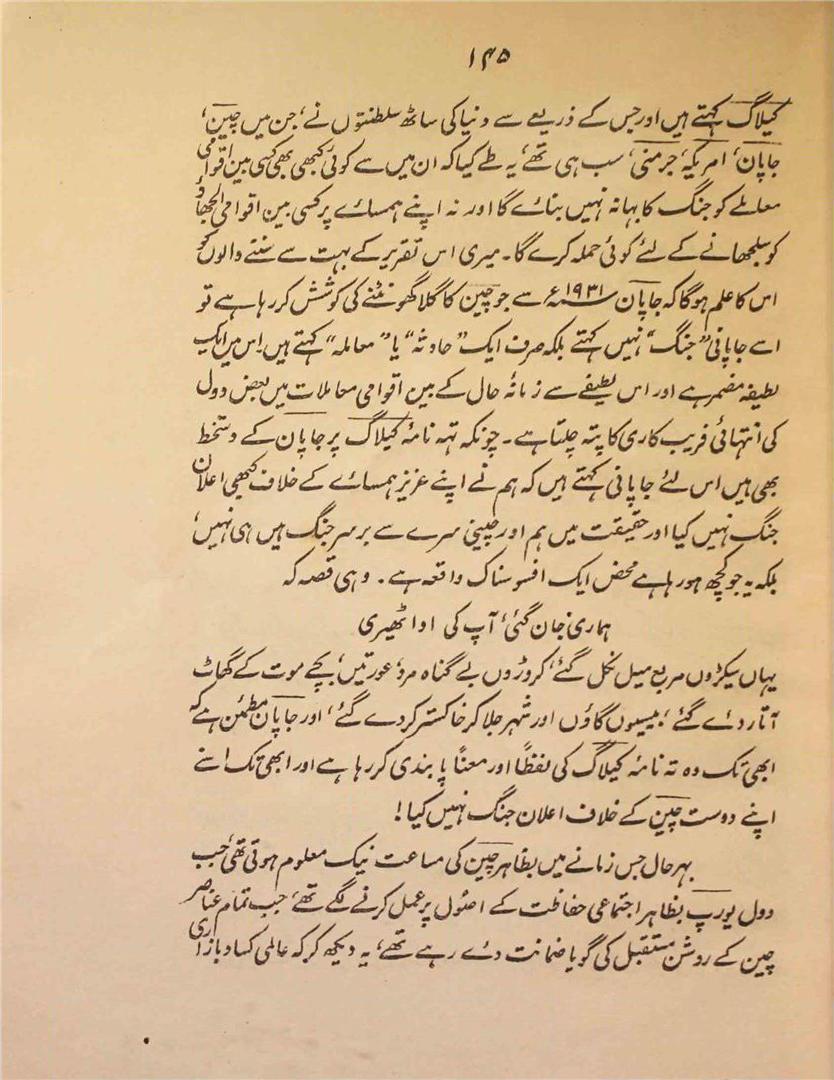 ۱۴۵
کیلاگ کہتے ہیں اور جس کے ذریعے سے دنیا کی ساٹھ سلطنتوں نے، جن میں چین،
جاپان، امریکہ، جرمنی، سب ہی تھے، یہ طے کیا کہ ان میں سے کوئی کبھی بھی کسی بین اقوامی
معاملے کو جنگ کا بہانہ نہیں بنائے گا اور نہ اپنے ہمسائے پر کسی بین اقوامی الجھاؤ
کو سلجھانے کے لئے کوئی حملہ کرے گا۔ میری اس تقریر کے بہت سے سننے والوں کو
اس کا علم ہوگا کہ جاپان ۱۹۳۱ء سے جو چین کا گلا گھونٹنے کی کوشش کر رہا ہے تو
اسے جاپانی "جنگ" نہیں کہتے بلکہ صرف ایک "حادثہ" یا "معاملہ" کہتے ہیں۔ اس میں ایک
لطیفہ مضمر ہے اور اس لطیفے سے زمانۂ حال کے بین اقوامی معاملات میں بعض دول
کی انتہائی فریب کاری کا پتہ چلتا ہے۔ چونکہ تہہ نامۂ کیلاگ پر جاپان کے دستخط
بھی ہیں اس لئے جاپانی کہتے ہیں کہ ہم نے اپنے عزیز ہمسائے کے خلاف کبھی اعلان
جنگ نہیں کیا اور حقیقت میں ہم اور چینی سرے سے برسر جنگ ہیں ہی نہیں،
بلکہ یہ جو کچھ ہو رہا ہے محض ایک افسوسناک واقعہ ہے۔ وہی قصہ کہ
ہماری جان گئی، آپ کی ادا ٹھیری
یہاں سیکڑوں مربع میل نکل گئے، کروڑوں بے گناہ مرد، عورتیں، بچے موت کے گھاٹ
اتار دئے گئے، بیسیوں گاؤں اور شہر جلا کر خاکستر کر دے گئے، اور جاپان مطمئن ہے کہ
ابھی تک وہ تہ نامۂ کیلاگ کی لفظاً اور معناً پابندی کر رہا ہے اور ابھی تک اسنے
اپنے دوست چین کے خلاف اعلان جنگ نہیں کیا!
بہرحال جس زمانے میں بظاہر چین کی ساعت نیک معلوم ہوتی تھی، جب
دول یورپ بظاہر اجتماعی حفاظت کے اصول پر عمل کرنے لگے تھے، جب تمام عناصر
چین کے روشن مستقبل کی گویا ضمانت دے رہے تھے، یہ دیکھ کر کہ عالمی کساد بازاری